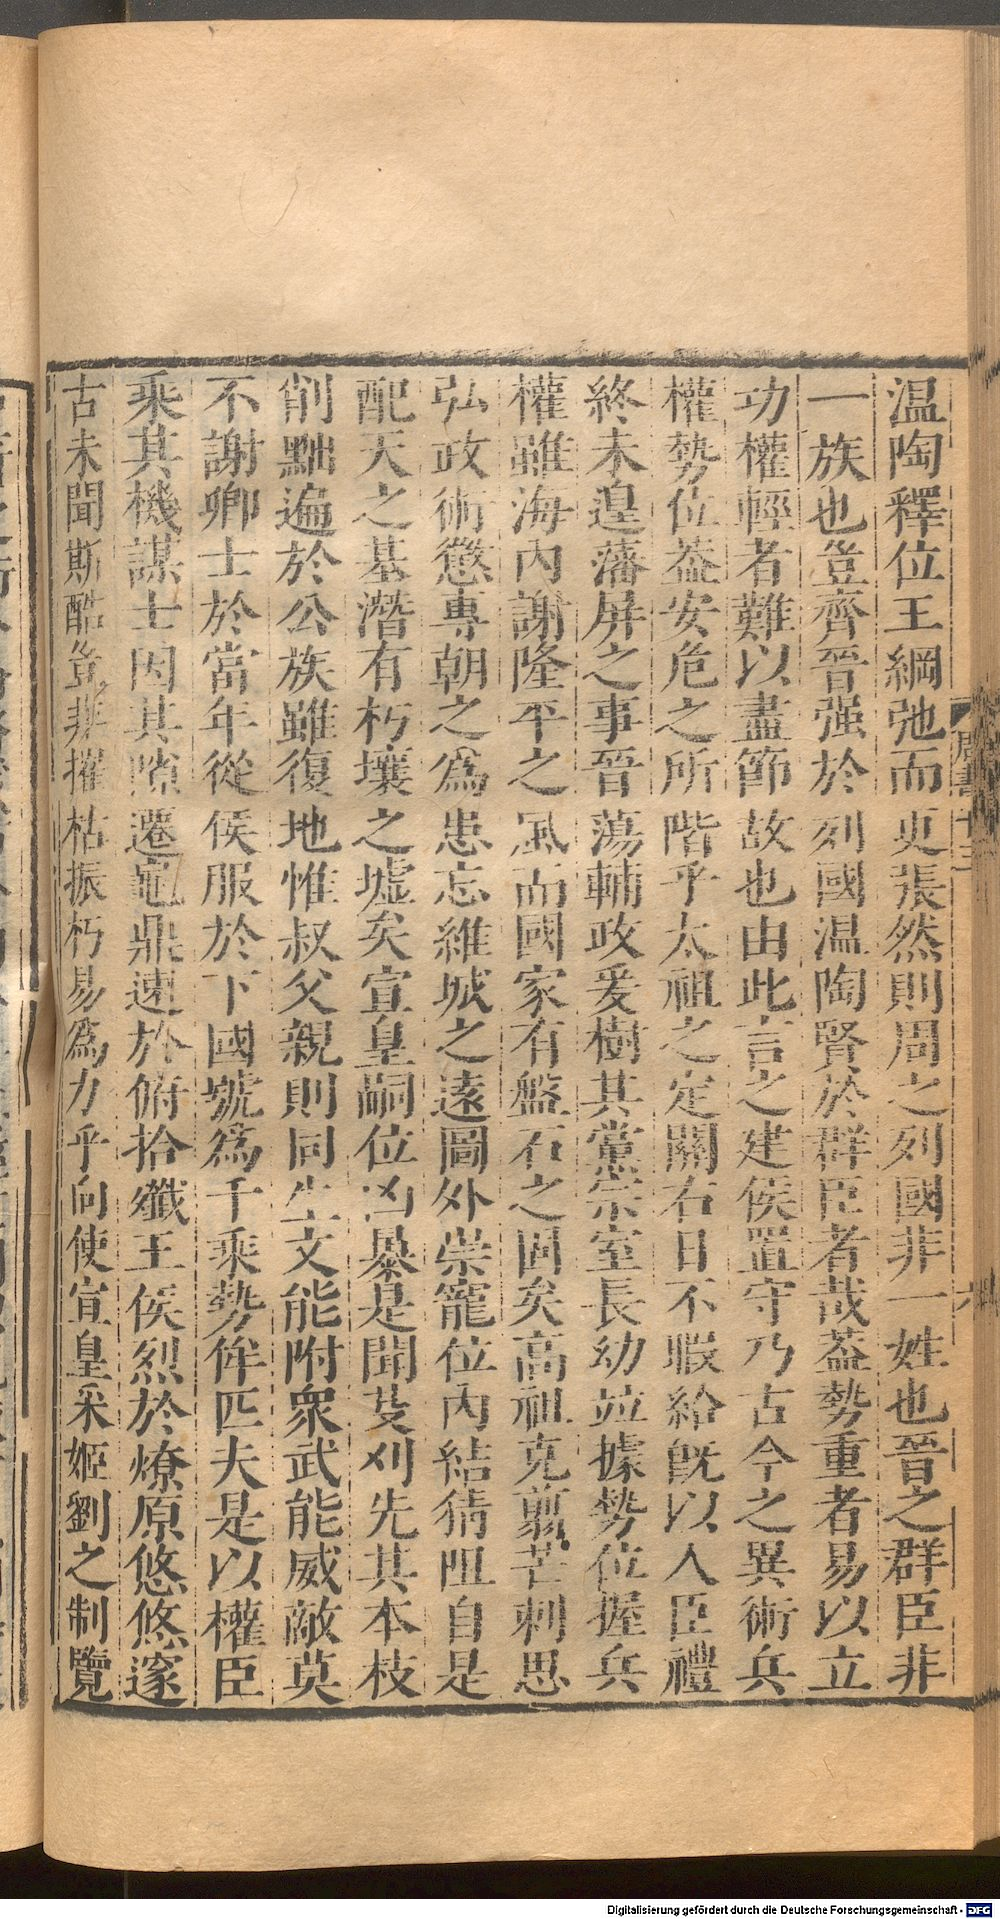 温陶釋位王綱弛而更張然則周之列國非一姓也晉之群臣非
一族也豈齊晉强於列國温陶賢於群臣者哉葢勢重者易以立
功權輕者難以盡節故也由此言之建侯置守乃古今之異術兵
權勢位葢安危之所階乎太祖之定關右日不暇給旣以人臣禮
終未遑藩屏之事晉蕩輔政爰樹其黨宗室長幼竝據勢位握兵
權雖海內謝隆平之風而國家有盤石之固矣高祖克翦芒刺思
弘政術懲專朝之爲患忘維城之遠圖外崇寵位內結猜阻自是
配天之基潛有朽壤之墟矣宣皇嗣位凶暴是聞芟刈先其本枝
削黜遍於公族雖復地惟叔父親則同生文能附衆武能威敵莫
不謝卿士於當年從侯服於下國號爲千乘勢侔匹夫是以權臣
乘其機謀士因其隙遷龜鼎速於俯拾殲王侯烈於燎原悠悠邃
古未聞斯酷豈非摧枯振朽易爲力乎向使宣皇采姬劉之制覽
周書十三
六
Digitalisierung gefördert durch die Deutsche Forschungsgemeinschaft - DFG